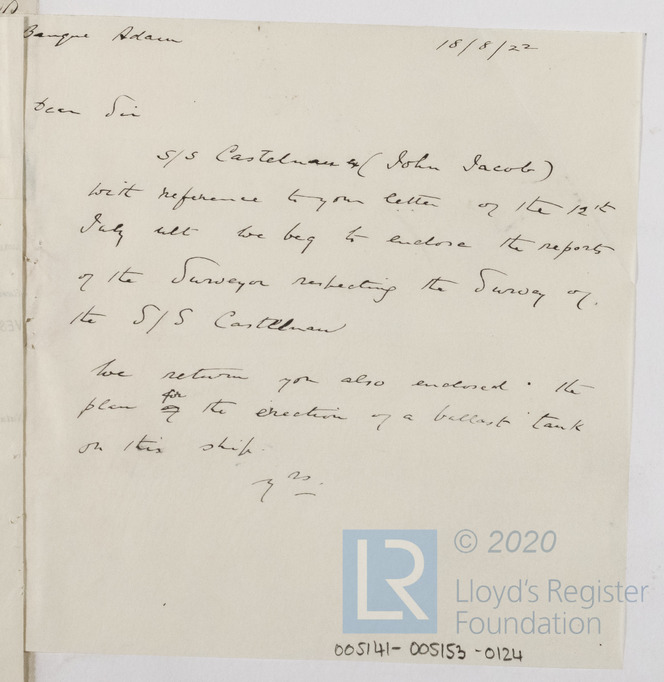 Banque Adam 18/8/22
Dear Sir
S/S Castelnau ex (John Jacob)
With reference to your letter of the 12th
July ult we beg to enclose the reports
of the Surveyor respecting the Survey of.
the S/S Castelnau
We return you also enclosed the
plan for the erection of a ballast tank
on this ship.
Yrs.
© 2020
LR
Lloyd's Register
Foundation
005141-005153-0124